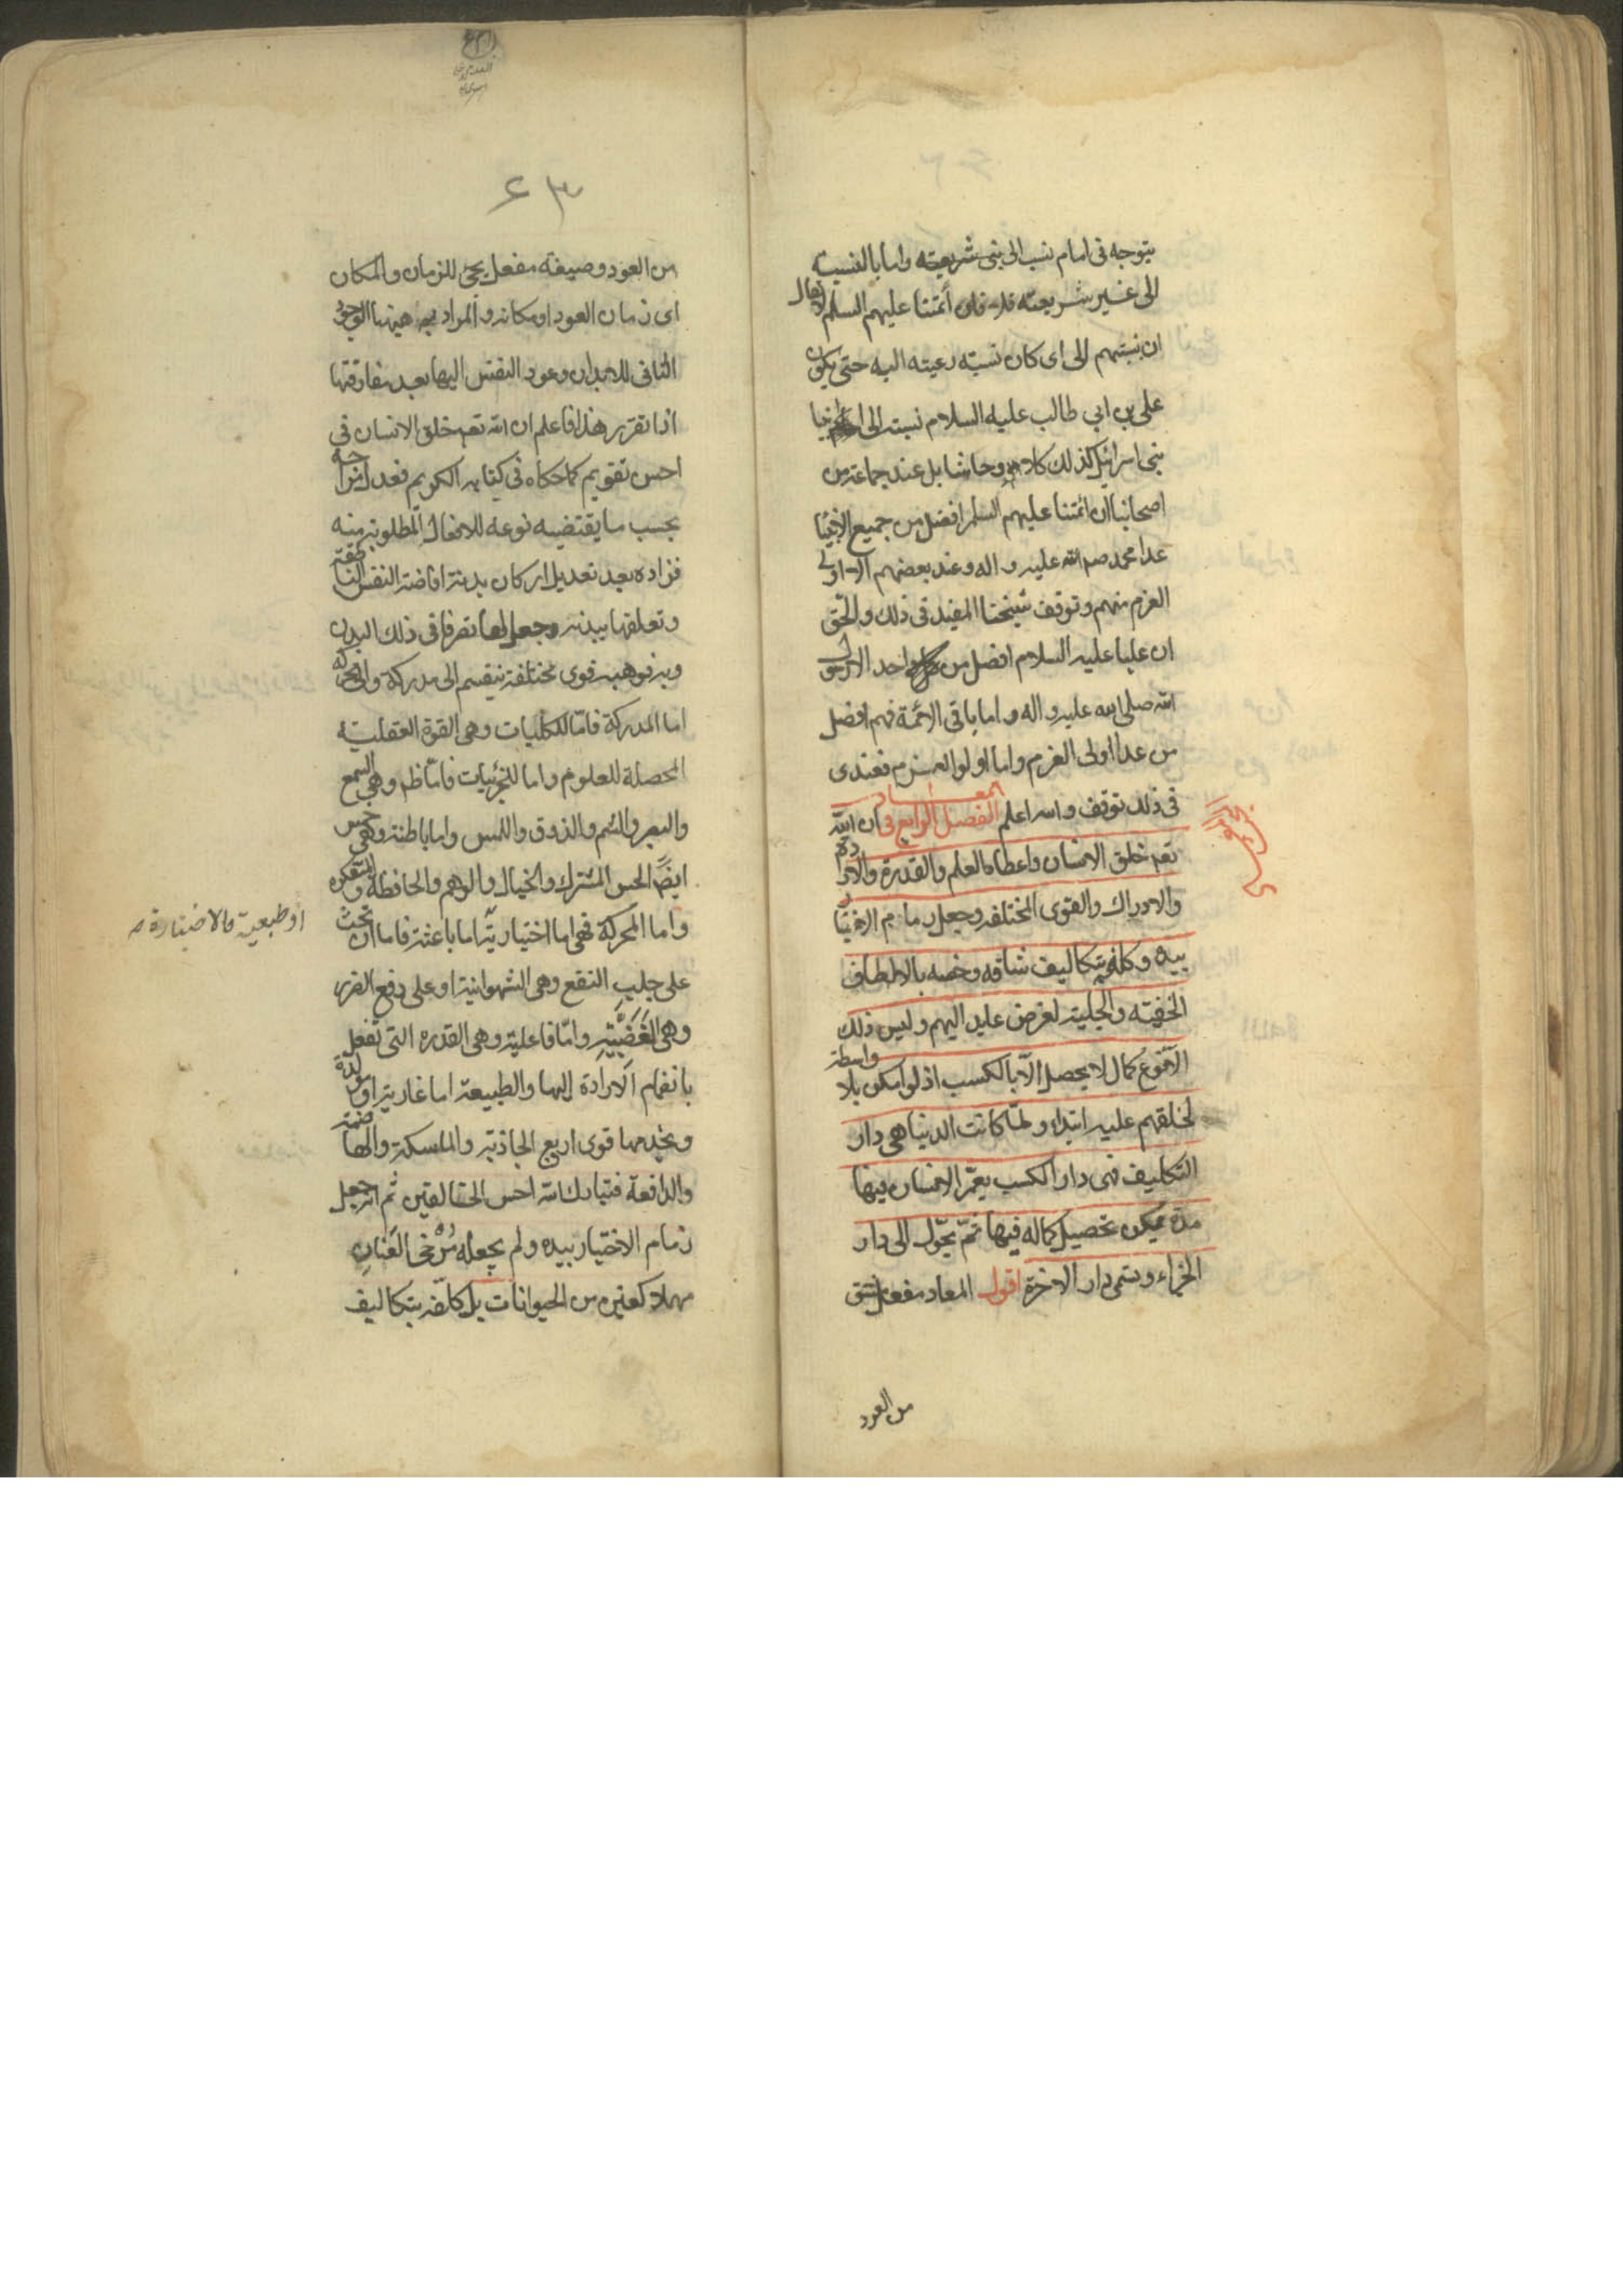 يتوجه فى امام نسب الى نبى شريعته واما بالنسبة
الى غير شريعته فلا فان أئمتنا عليهم السلم لا يقال
ان نسبتهم الى اى كان نسبة رعيته اليه حتى يكون
على بن ابي طالب عليه السلام نسبته الى انبيا
بنى اسرائيل كذلك كلا وحاشا بل عند جماعة من
اصحابنا ان ائمتنا عليهم السلم افضل من جميع الانبيا
عدا محمد صم الله عليه واله وعند بعضهم الا اولى
العزم منهم وتوقف شيخنا المفيد فى ذلك والحق
ان عليا عليه السلام افضل من كل واحد الا رسول
الله صلى الله عليه واله واما باقى الائمة فهم افضل
من عدا اولى العزم واما اولوا العزم فعندى
فى ذلك توقف والله اعلم الفصل الرابع فى المعاد ان الله
تعم خلق الانسان واعطاه العلم والقدرة والارادة
والادراك والقوى المختلفه وجعل زمام الاختيار
بيده وكلفه بتكاليف شاقه وخصه بالالطاف
الخفيته والجلية لغرض عايد اليهم وليس ذلك
الا نوع كمال لا يحصل الا بالكسب اذ لو امكن بلا واسطة
لخلقهم عليه ابتداء ولما كانت الدنيا هى دار
التكليف فهى دار الكسب يعمر الانسان فيها
مدة يمكن تحصيل كماله فيها ثم يحول الى دار
الجزاء وتسمى دار الاخرة اقول المعاد مفعل مشتق
من العود
٤٣
من العود وصيغة مفعل يجئ للزمان والمكان
اى زمان العود او مكانه والمراد به هيهنا الوجود
الثانى للابدان وعود النفس اليها بعد مفارقتها
اذا تقرر هذا فاعلم ان الله تعم خلق الانسان فى
احسن تقويم كما حكاه فى كتابه الكريم فعدل مزاجه
بحسب ما يقتضيه نوعه للافعال المطلوبة منه
فزاده بعد تعديل اركان بدنه افاضة النفس الناطقة
وتعلقها ببدنه وجعل لها تصرفا فى ذلك البدن
وبه فوهبه قوى مختلفة ينقسم الى مدركة والى محركة
اما المدركة فاما للكليات وهى القوة العقلية
المحصلة للعلوم واما للجزئيات فاما ظ وهى السمع
والبصر والشم والذوق واللمس واما باطنة وهى خمس
ايضا الحس المشترك والخيال والوهم والحافظة والمتفكرة
واما المحركة فهى اما اختيارية اما باعثة فاما ان تحث
او طبعية فالاختيارية ص
على جلب النفع وهى الشهوانية او على دفع الضرر
وهى الغضبية واما فاعلية وهى القدرة التى تفعل
بانضمام الارادة اليها والطبيعة اما غاذية او مولدة
ويخدمها قوى اربع الجاذبة والماسكة والهاضمة
والدافعة فتبارك الله احسن الخالقين ثم انه جعل
زمام الاختيار بيده ولم يجعله مرخى العنان
مهملا كغيره من الحيوانات بل كلفه بتكاليف